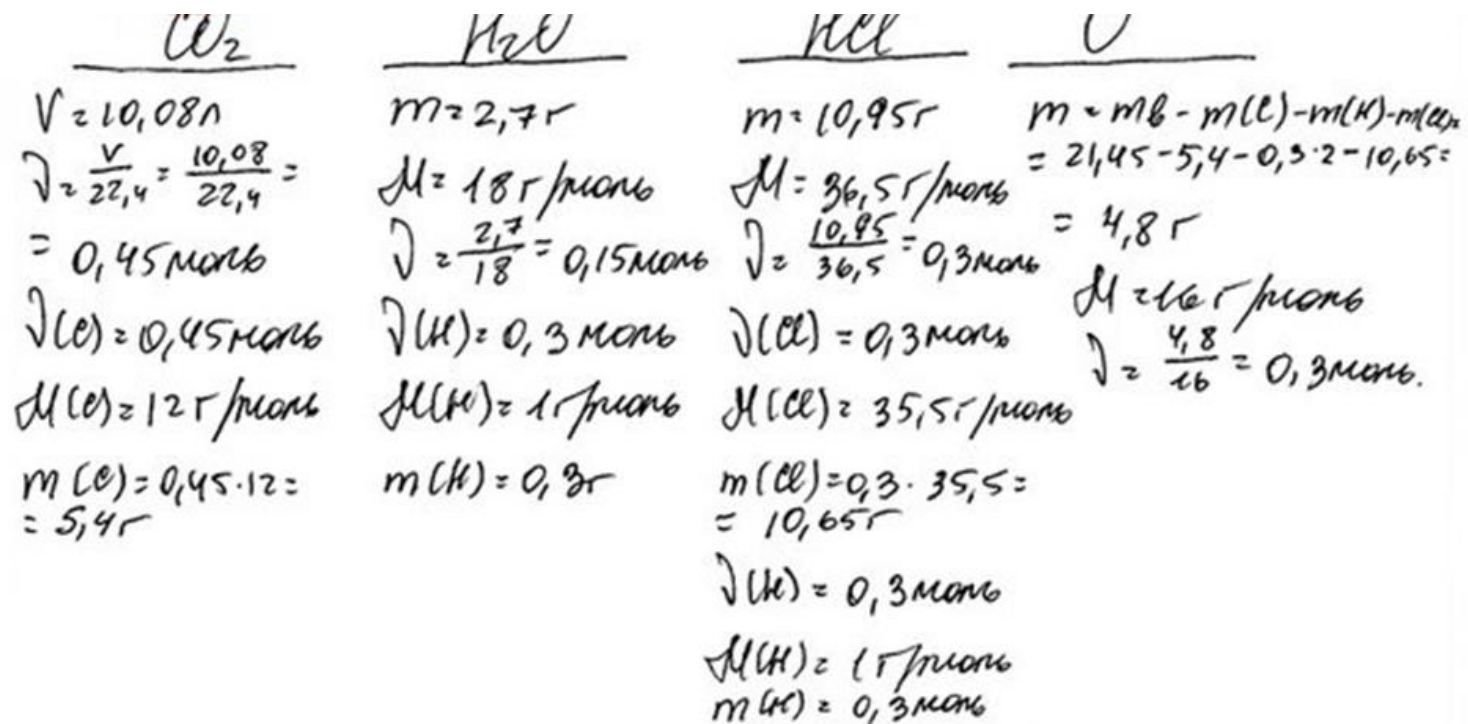 CO₂
V = 10,08л
ν = V/22,4 = 10,08/22,4 =
= 0,45 моль
ν(C) = 0,45 моль
M(C) = 12 г/моль
m(C) = 0,45·12 =
= 5,4г
H₂O
m = 2,7г
M = 18 г/моль
ν = 2,7/18 = 0,15 моль
ν(H) = 0,3 моль
M(H) = 1 г/моль
m(H) = 0,3г
HCl
m = 10,95г
M = 36,5 г/моль
ν = 10,95/36,5 = 0,3 моль
ν(Cl) = 0,3 моль
M(Cl) = 35,5 г/моль
m(Cl) = 0,3 · 35,5 =
= 10,65г
ν(H) = 0,3 моль
M(H) = 1 г/моль
m(H) = 0,3 моль
O
m = mв - m(C) - m(H) - m(Cl) =
= 21,45 - 5,4 - 0,3·2 - 10,65 =
= 4,8 г
M = 16 г/моль
ν = 4,8/16 = 0,3 моль.